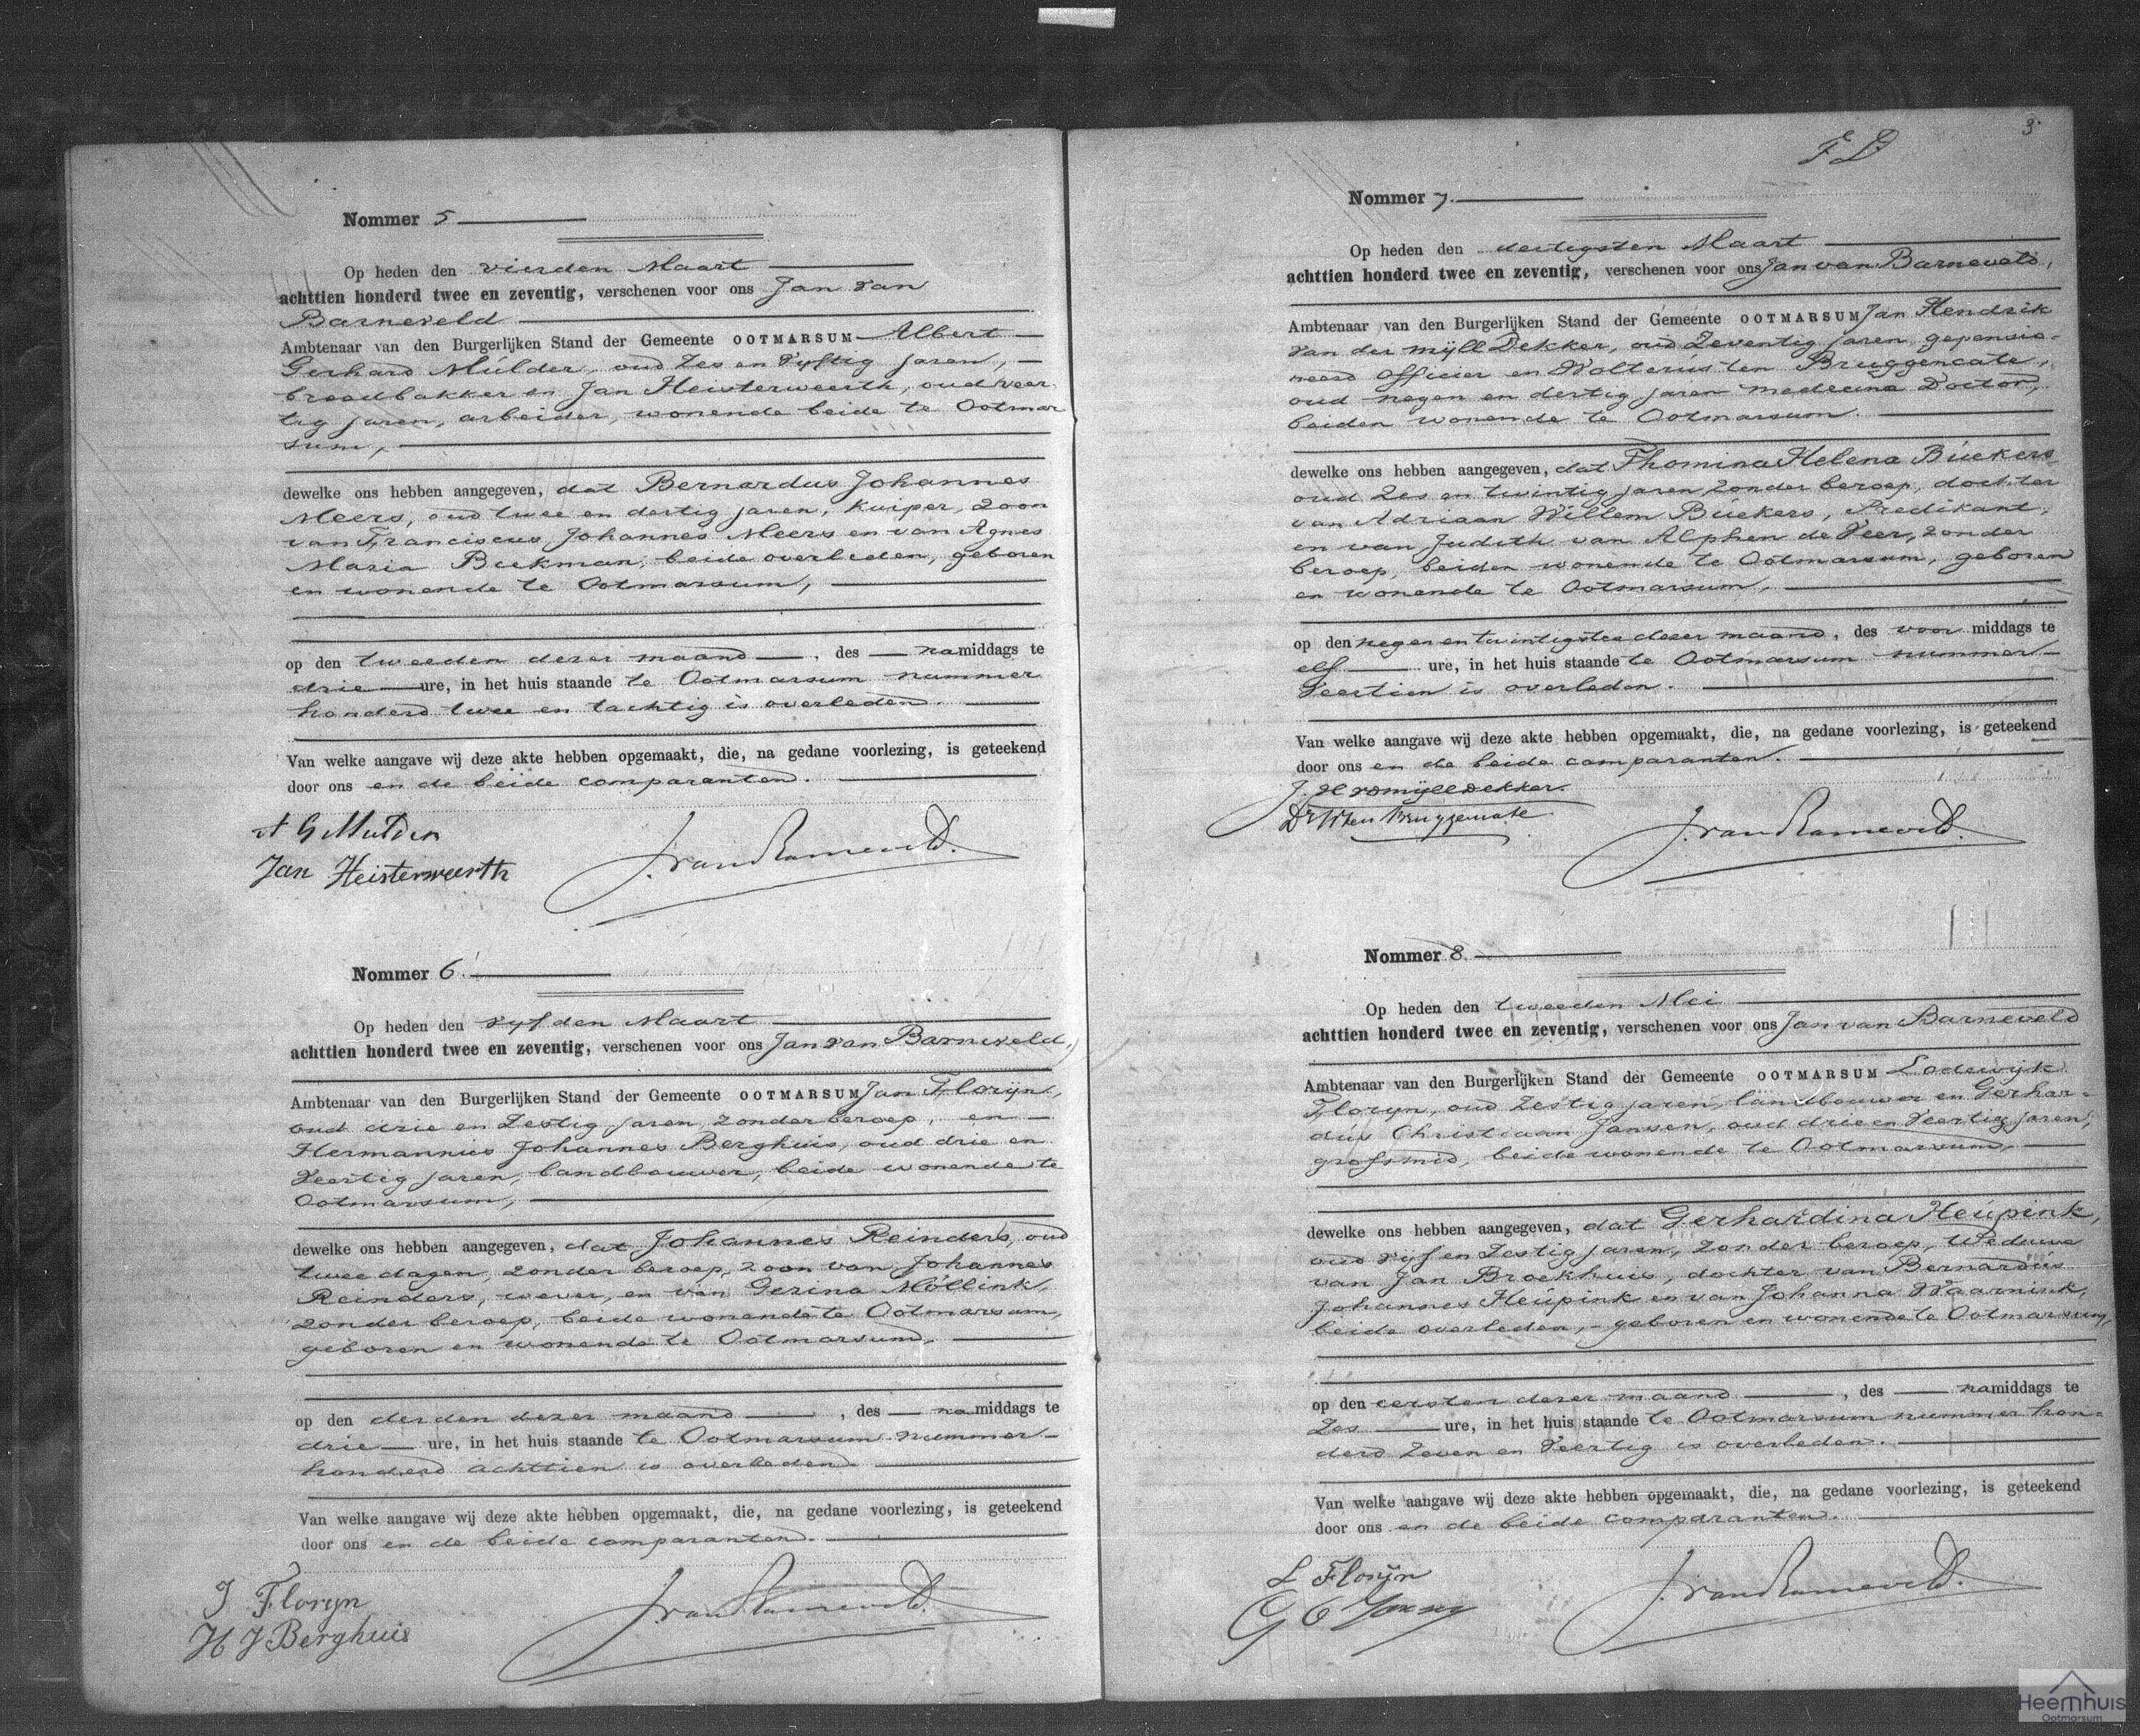 Nommer 5
Op heden den vierden Maart
achttien honderd twee en zeventig, verschenen voor ons Jan van
Barneveld
Ambtenaar van den Burgerlijken Stand der Gemeente OOTMARSUM Albert
Gerhard Mülder, oud zes en vyftig jaren,
broodbakker en Jan Heisterweerth, oud veer
tig jaren, arbeider, wonende beide te Ootmar
sum,
dewelke ons hebben aangegeven, dat Bernardus Johannes
Meers, oud twee en dertig jaren, kuiper, zoon
van Franciscus Johannes Meers en van Agnes
Maria Beekman, beide overleden, geboren
en wonende te Ootmarsum,
op den tweeden dezer maand, des namiddags te
drie ure, in het huis staande te Ootmarsum nummer
honderd twee en tachtig is overleden.
Van welke aangave wij deze akte hebben opgemaakt, die, na gedane voorlezing, is geteekend
door ons en de beide comparanten.
A G Mulder
Jan Heisterweerth
J. van Barneveld.
Nommer 6.
Op heden den vyfden Maart
achttien honderd twee en zeventig, verschenen voor ons Jan van Barneveld,
Ambtenaar van den Burgerlijken Stand der Gemeente OOTMARSUM Jan Florijn,
oud drie en zestig jaren, zonder beroep, en
Hermannus Johannes Berghuis, oud drie en
veertig jaren, landbouwer, beide wonende te
Ootmarsum,
dewelke ons hebben aangegeven, dat Johannes Reinders, oud
twee dagen, zonder beroep, zoon van Johannes
Reinders, wever, en van Gezina Möllink,
zonder beroep, beide wonende te Ootmarsum,
geboren en wonende te Ootmarsum,
op den derden dezer maand, des namiddags te
drie ure, in het huis staande te Ootmarsum nummer
honderd achttien is overleden.
Van welke aangave wij deze akte hebben opgemaakt, die, na gedane voorlezing, is geteekend
door ons en de beide comparanten.
J Floryn
H J Berghuis
J. van Barneveld.
3
Nommer 7.
Op heden den dertigsten Maart
achttien honderd twee en zeventig, verschenen voor ons Jan van Barneveld,
Ambtenaar van den Burgerlijken Stand der Gemeente OOTMARSUM Jan Hendrik
van der Mÿll Dekker, oud zeventig jaren, gepensio-
neerd officier en Wolterus ten Bruggencate,
oud negen en dertig jaren medecina Doctor,
beiden wonende te Ootmarsum.
dewelke ons hebben aangegeven, dat Thomina Helena Büekers
oud zes en twintig jaren zonder beroep, dochter
van Adriaan Willem Büekers, Predikant,
en van Judith van Alphen de Veer, zonder
beroep, beiden wonende te Ootmarsum, geboren
en wonende te Ootmarsum,
op den negen en twintigsten dezer maand, des voor middags te
elf ure, in het huis staande te Ootmarsum nummer
veertien is overleden.
Van welke aangave wij deze akte hebben opgemaakt, die, na gedane voorlezing, is geteekend
door ons en de beide comparanten.
J. H vd mÿll dekker.
Dr W ten Bruggencate
J. van Barneveld.
Nommer 8.
Op heden den tweeden Mei
achttien honderd twee en zeventig, verschenen voor ons Jan van Barneveld
Ambtenaar van den Burgerlijken Stand der Gemeente OOTMARSUM Lodewijk
Floryn, oud zestig jaren, landbouwer en Gerhar-
dús Christiaan Jansen, oud drie en veertig jaren,
grofsmid, beide wonende te Ootmarsum,
dewelke ons hebben aangegeven, dat Gerhardina Heúpink,
oud vyf en zestig jaren, zonder beroep, Weduwe
van Jan Broekhuis, dochter van Bernardús
Johannes Heúpink en van Johanna Waarnink,
beide overleden, geboren en wonende te Ootmarsum,
op den eersten dezer maand, des namiddags te
zes ure, in het huis staande te Ootmarsum nummer hon-
derd zeven en veertig is overleden.
Van welke aangave wij deze akte hebben opgemaakt, die, na gedane voorlezing, is geteekend
door ons en de beide comparanten.
L Florijn
G C Jansen
J. van Barneveld.
Heemhuis
Ootmarsum